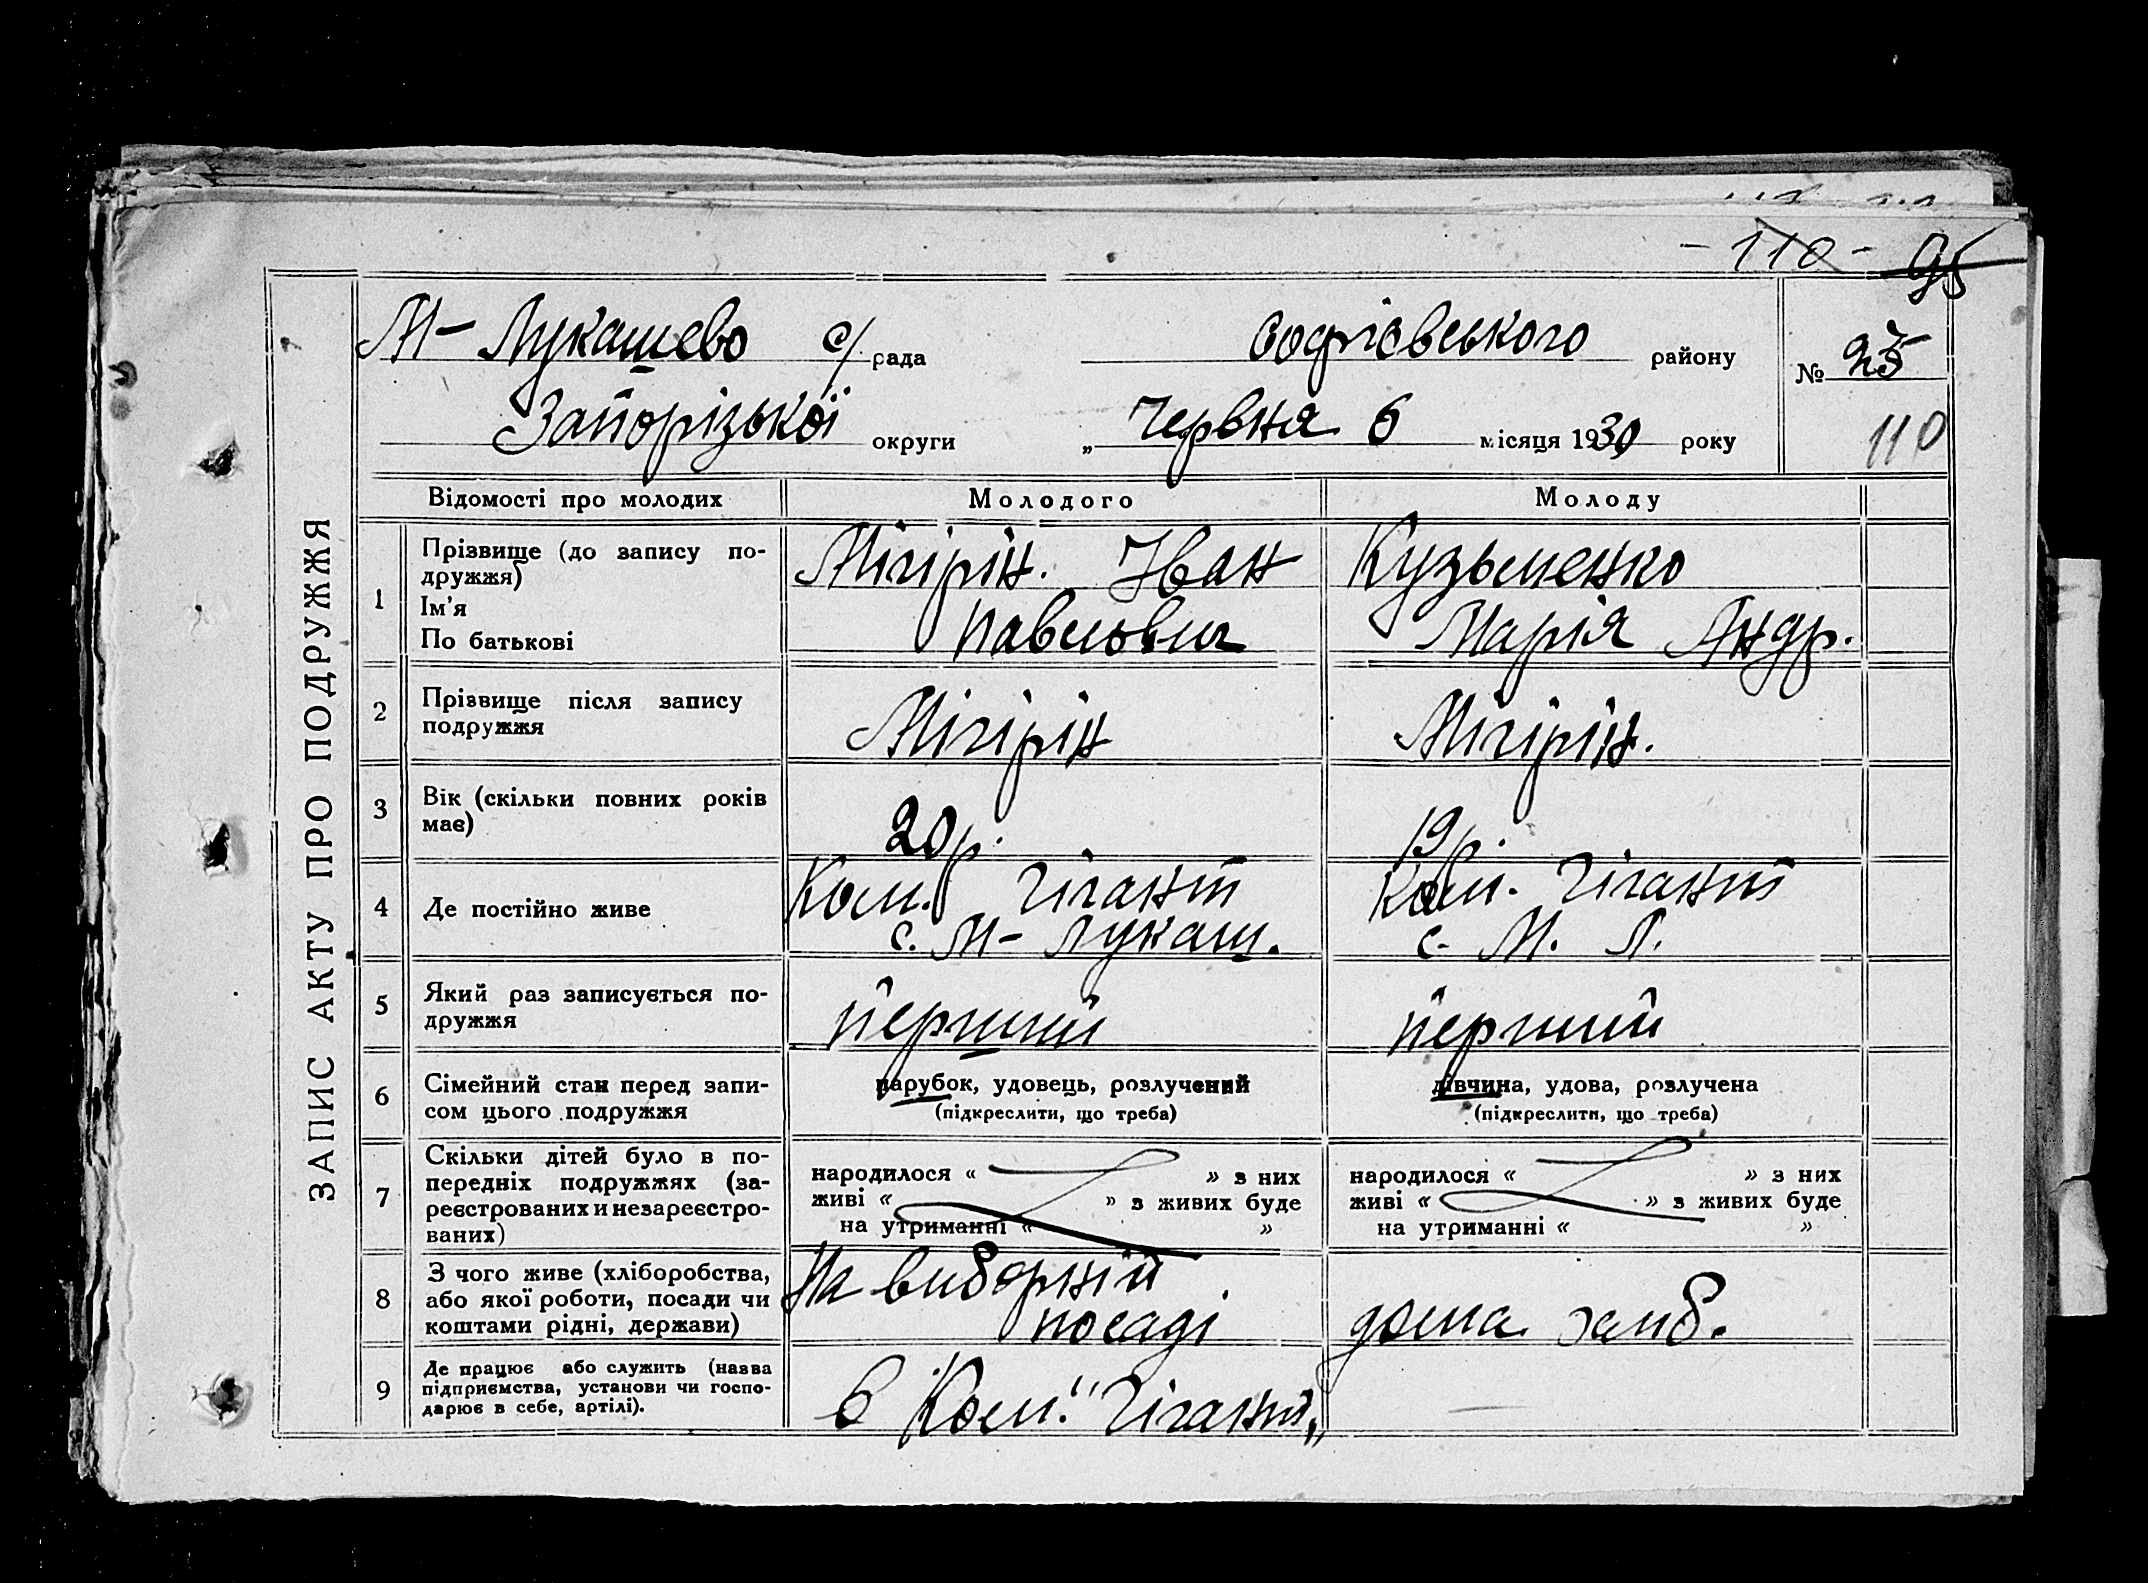 - 110 - 95
М-Лукашево с/рада Софіевського району № 25
Запорізької округи „ Червня 6 місяця 1930 року 110
ЗАПИС АКТУ ПРО ПОДРУЖЖЯ
Відомості про молодих Молодого Молоду
1 Прізвище (до запису по-
дружжя)
Ім'я
По батькові
Мігірін. Іван
Павлович
Кузьменко
Марія Андр.
2 Прізвище після запису
подружжя
Мігірін
Мігірін.
3 Вік (скільки повних років
має)
20 р.
19 р.
4 Де постійно живе
Ком. Гігант
с. М-Лукаш.
Ком. Гігант
с. М. Л.
5 Який раз записується по-
дружжя
перший
перший
6 Сімейний стан перед запи-
сом цього подружжя
парубок, удовець, розлучений
(підкреслити, що треба)
дівчина, удова, розлучена
(підкреслити, що треба)
7 Скільки дітей було в по-
передніх подружжях (за-
реєстрованих и незареєстро-
ваних)
народилося « » з них
живі « » з живих буде
на утриманні « »
народилося « » з них
живі « » з живих буде
на утриманні « »
8 З чого живе (хліборобства,
або якої роботи, посади чи
коштами рідні, держави)
На виборній
посаді
дома
9 Де працює або служить (назва
підприємства, установи чи госпо-
дарює в себе, артілі).
в Ком. "Гігант„